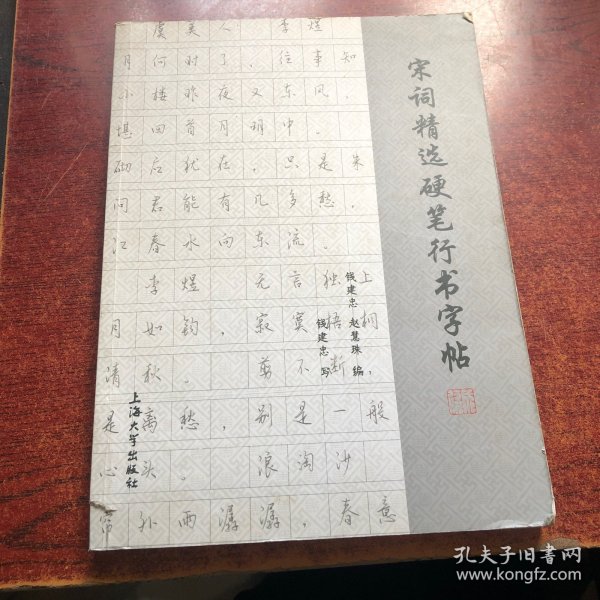 宋词精选硬笔行书字帖
钱建忠 赵慧珠 编
钱建忠 写
上海大学出版社
虞美人 李煜
月何时了，往事知
小楼昨夜又东风，
堪回首月明中。
砌应犹在，只是朱
问君能有几多愁，
江春水向东流。
李煜 无言独上
月如钩，寂寞梧桐，
清秋。 剪不断
是离愁，别是一般
心头。 浪淘沙
帘外雨潺潺，春意
孔夫子旧书网
www.kongfz.com